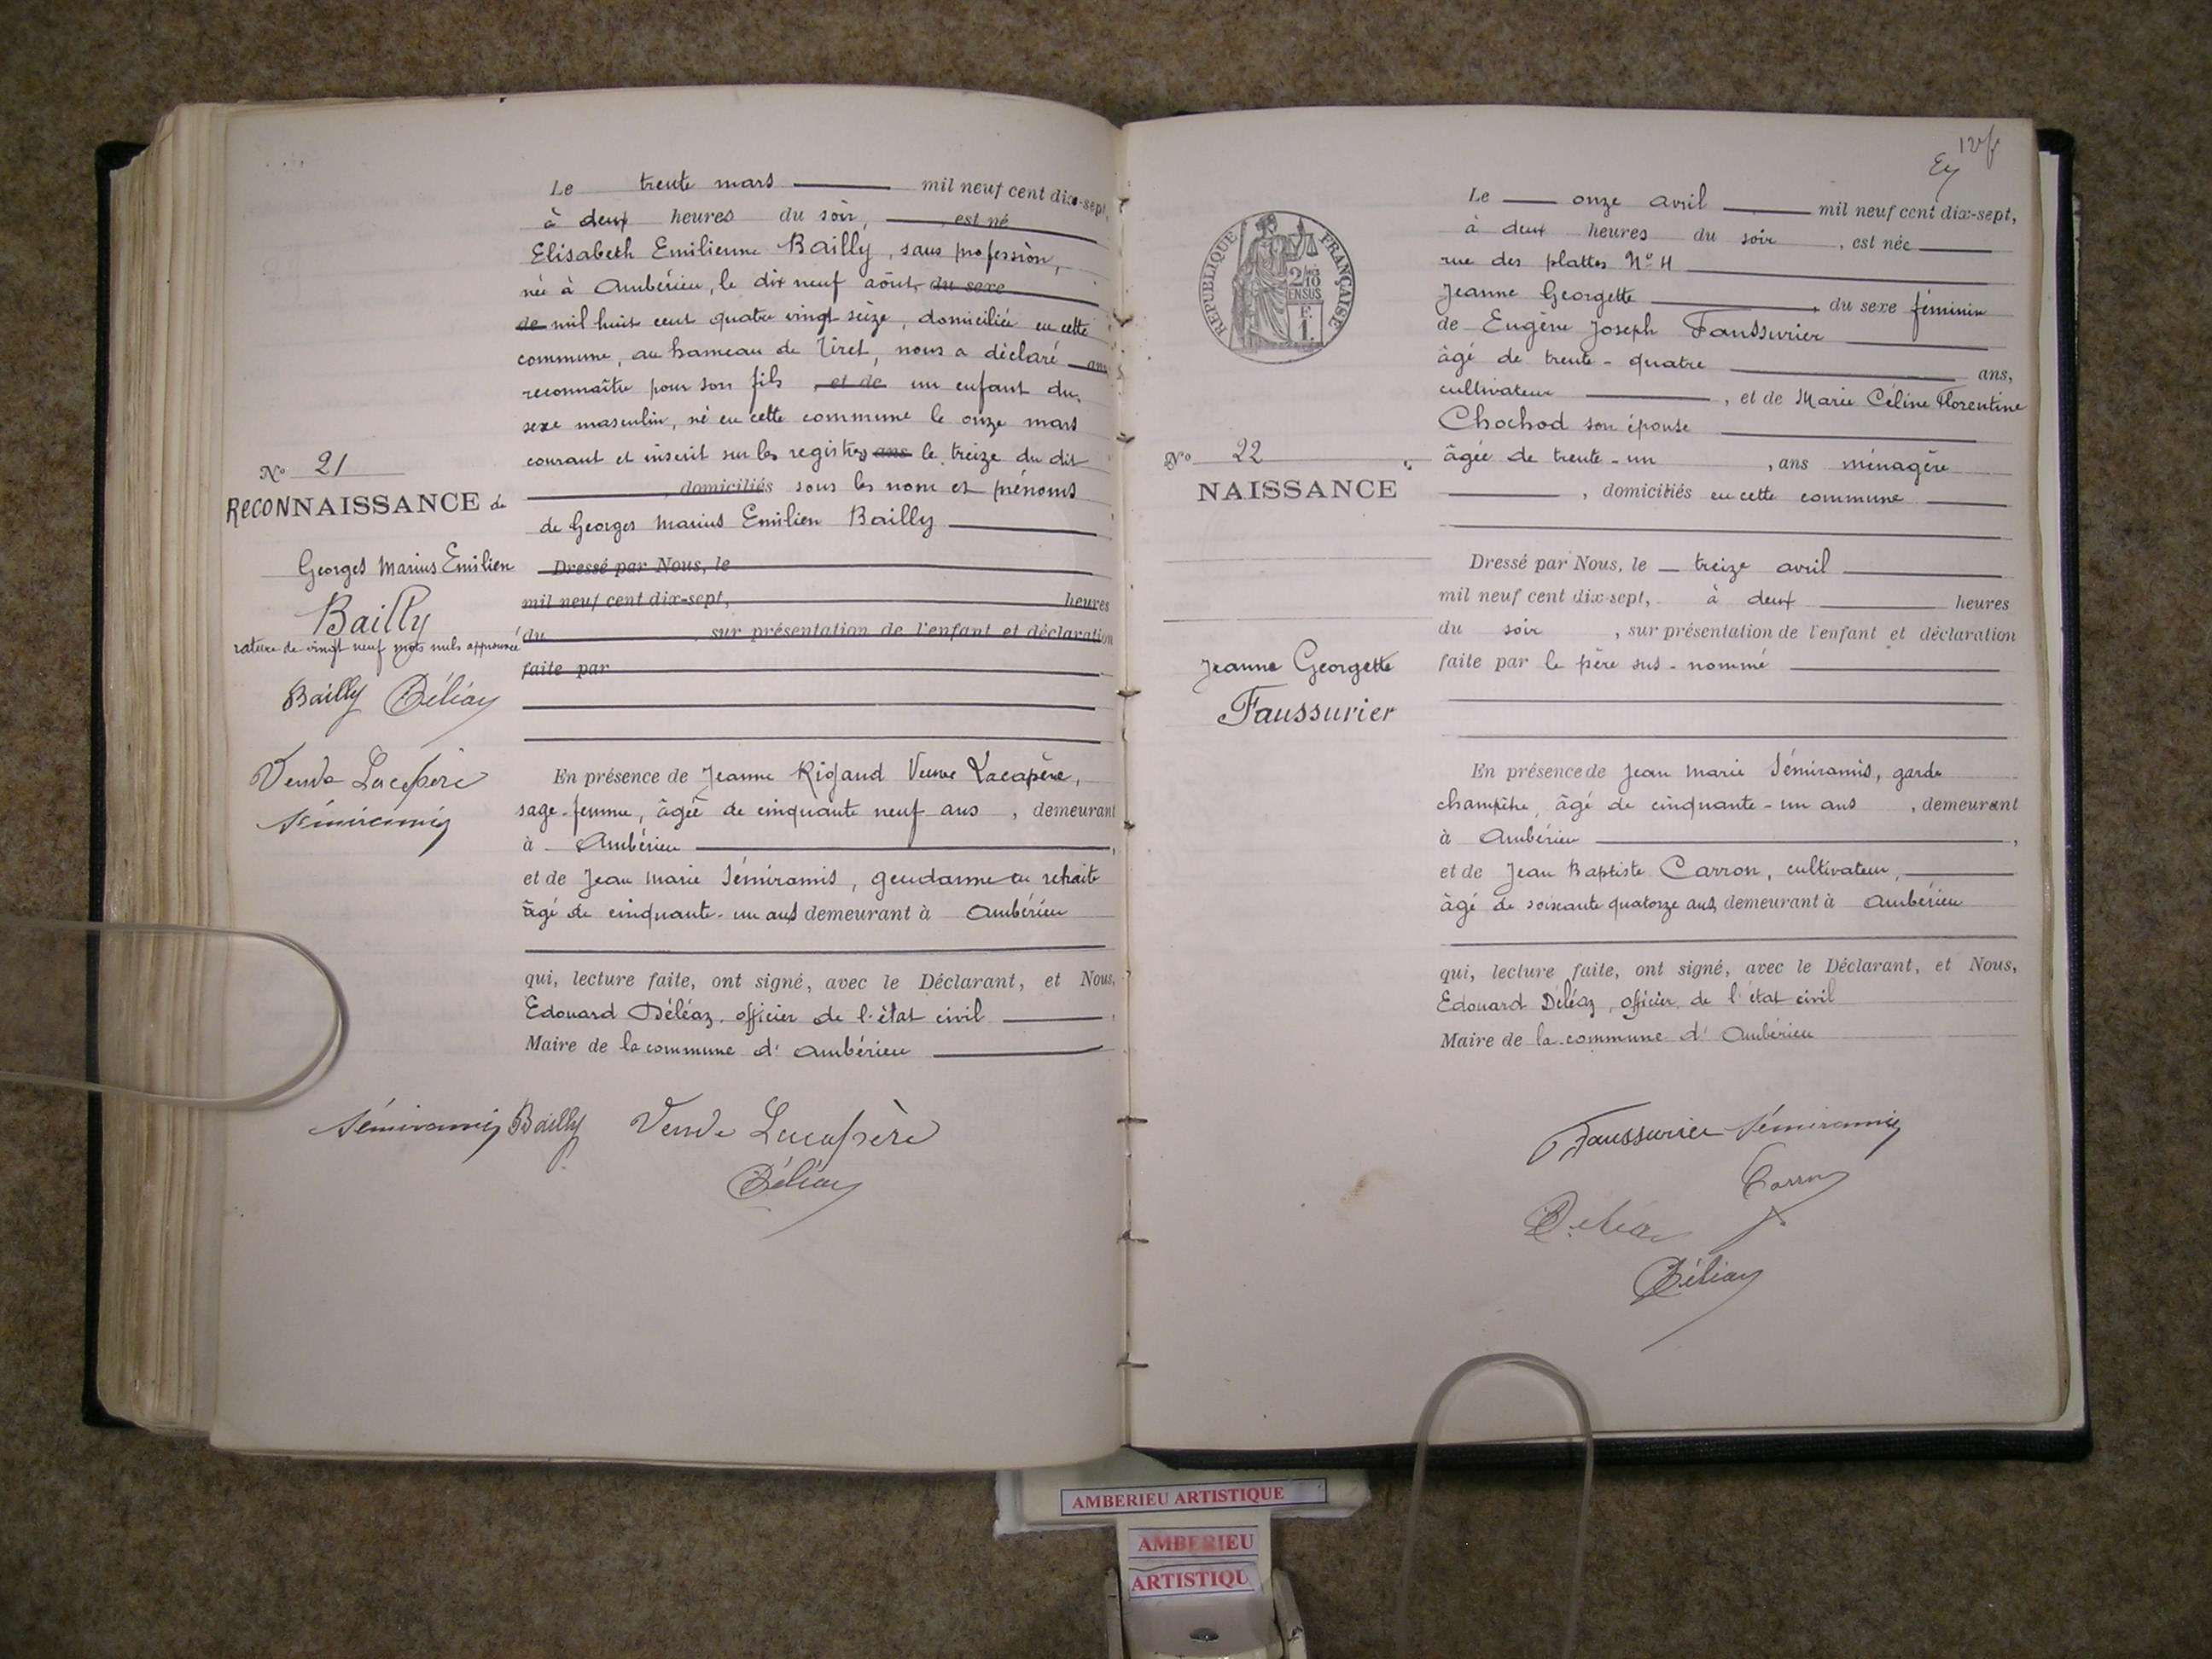 Le trente mars mil neuf cent dix-sept,
à deux heures du soir, est né
Elisabeth Emilienne Bailly, sans profession,
née à Ambérieu, le dix neuf août du sexe
de mil huit cent quatre vingt seize, domiciliée en cette
commune, au hameau de Tiret, nous a déclaré ans
reconnaître pour son fils et de un enfant du
sexe masculin, né en cette commune le onze mars
courant et inscrit sur les registres ans le treize du dit
, domiciliés sous les nom et prénoms
de Georges Marius Emilien Bailly
Nº 21
RECONNAISSANCE de
Georges Marius Emilien
Bailly
rature de vingt neuf mots nuls approuvée
Bailly Déléaz
Veuve Lacapère
Sémiramis
Dressé par Nous, le
mil neuf cent dix-sept, heures
du , sur présentation de l'enfant et déclaration
faite par
En présence de Jeanne Rigaud Veuve Lacapère,
sage-femme, âgée de cinquante neuf ans , demeurant
à Ambérieu ,
et de Jean Marie Sémiramis, gendarme en retraite
âgé de cinquante-un ans demeurant à Ambérieu
qui, lecture faite, ont signé, avec le Déclarant, et Nous,
Edouard Déléaz, officier de l'état civil ,
Maire de la commune d' Ambérieu
Sémiramis Bailly Veuve Lacapère
Déléaz
12
Le onze avril mil neuf cent dix-sept,
à deux heures du soir , est née
rue des plattes Nº 4
Jeanne Georgette , du sexe féminin
de Eugène Joseph Faussurier
âgé de trente-quatre ans,
cultivateur , et de Marie Céline Florentine
Chochod son épouse
âgée de trente-un , ans ménagère
, domiciliés en cette commune
RÉPUBLIQUE FRANÇAISE
2/10
EN SUS
F.
1.
Nº 22
NAISSANCE
Jeanne Georgette
Faussurier
Dressé par Nous, le treize avril
mil neuf cent dix-sept, à deux heures
du soir , sur présentation de l'enfant et déclaration
faite par le père sus-nommé
En présence de Jean Marie Sémiramis, garde
champêtre, âgé de cinquante-un ans , demeurant
à Ambérieu ,
et de Jean Baptiste Carron, cultivateur,
âgé de soixante quatorze ans, demeurant à Ambérieu
qui, lecture faite, ont signé, avec le Déclarant, et Nous,
Edouard Déléaz, officier de l'état civil
Maire de la commune d' Ambérieu
Faussurier Sémiramis
Carron
Déléaz
Déléaz
AMBERIEU ARTISTIQUE
AMBERIEU
ARTISTIQU